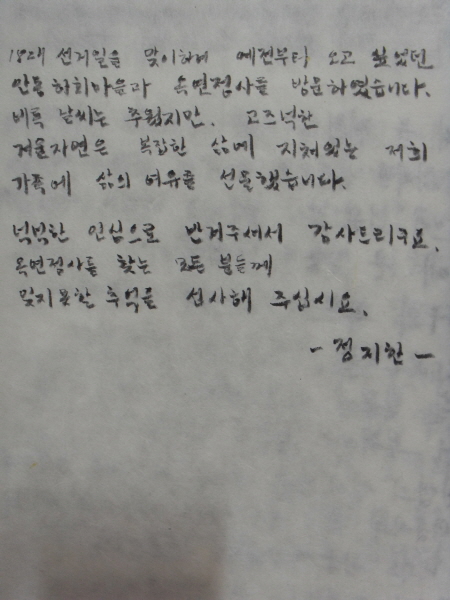 18대 선거일을 맞이하여 예전부터 오고 싶었던
안동하회마을과 옥연정사를 방문하였습니다.
비록 날씨는 추웠지만, 고즈넉한
겨울자연은 복잡한 삶에 지쳐있는 저희
가족에 삶의 여유를 선물했습니다.
넉넉한 인심으로 반겨주셔서 감사드리구요,
옥연정사를 찾는 모든 분들께
잊지못할 추억을 선사해 주십시오.
- 정지찬 -